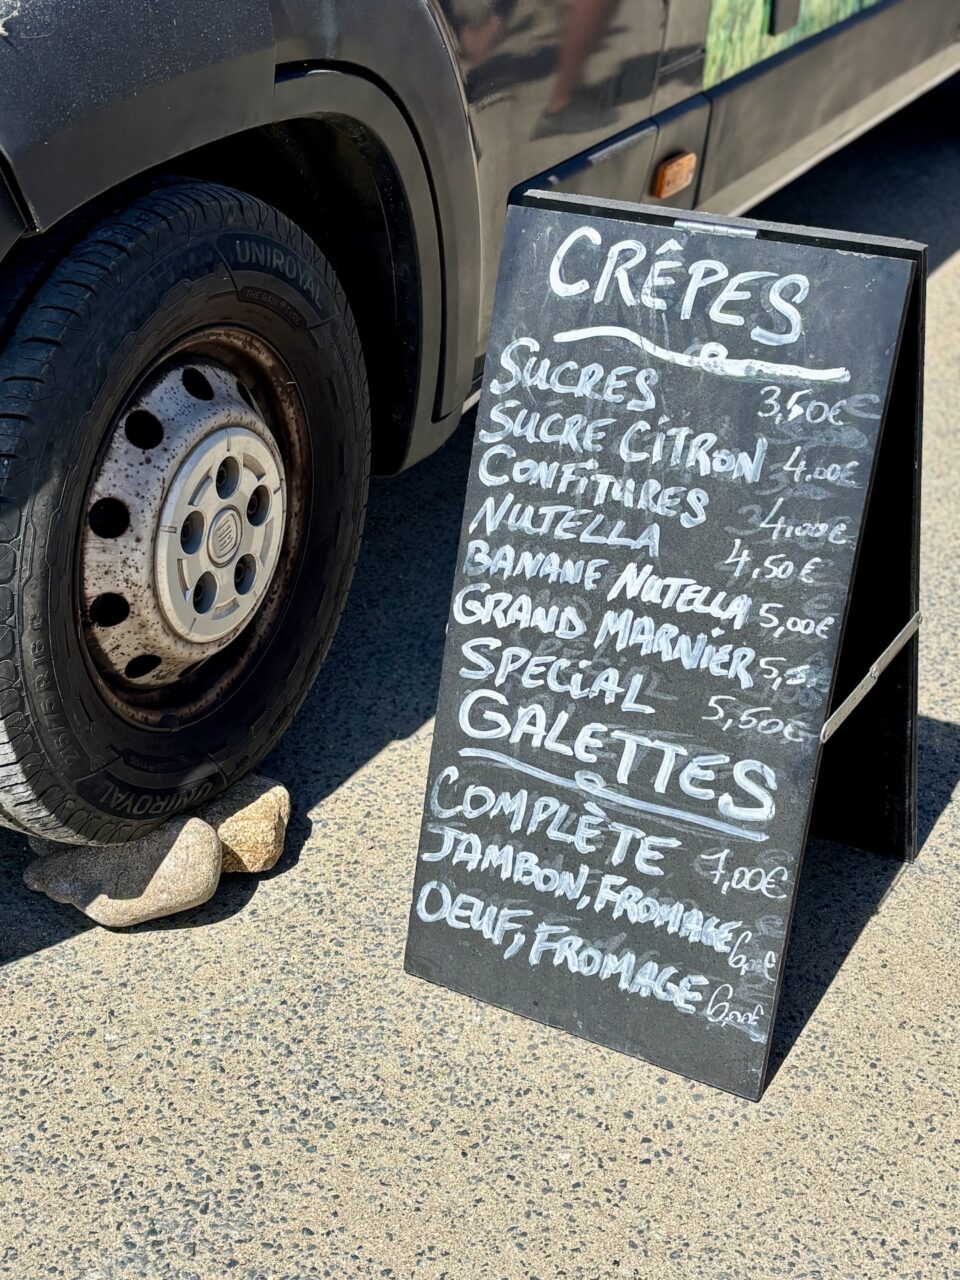 CRÊPES
SUCRES 3,50€
SUCRE CITRON 4,00€
CONFITURES 4,00€
NUTELLA 4,50€
BANANE NUTELLA 5,00€
GRAND MARNIER
SPECIAL 5,50€
GALETTES
COMPLÈTE 7,00€
JAMBON, FROMAGE 6,00€
OEUF, FROMAGE 6,00€
UNIROYAL
THE RAIN TYRE
UNIROYAL